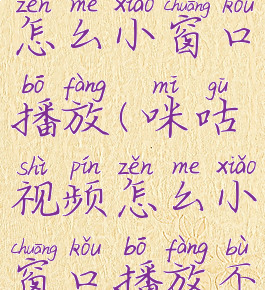 zěn me xiǎo chuāng kǒu
怎么小窗口
bō fàng mī gū
播放(咪咕
shì pín zěn me xiǎo
视频怎么小
chuāng kǒu bō fàng bù
窗口播放不